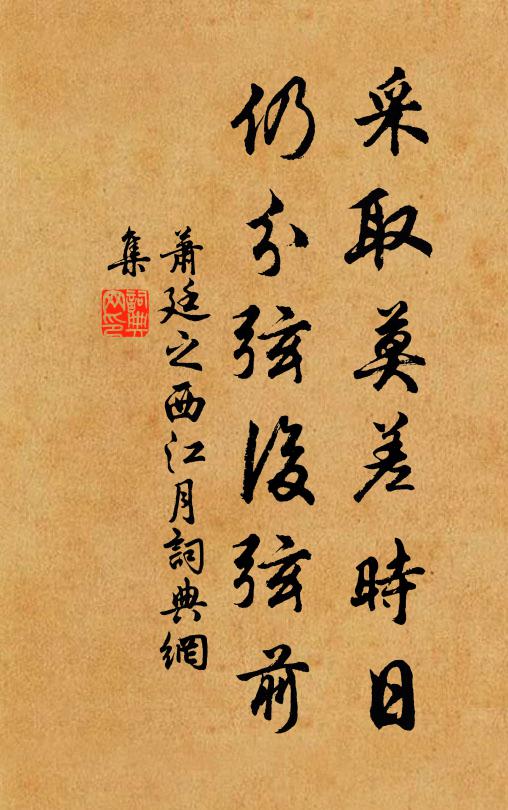 采取莫差時日
仍分弦後弦前
蕭廷之西江月詞典網
集
詞典
網印